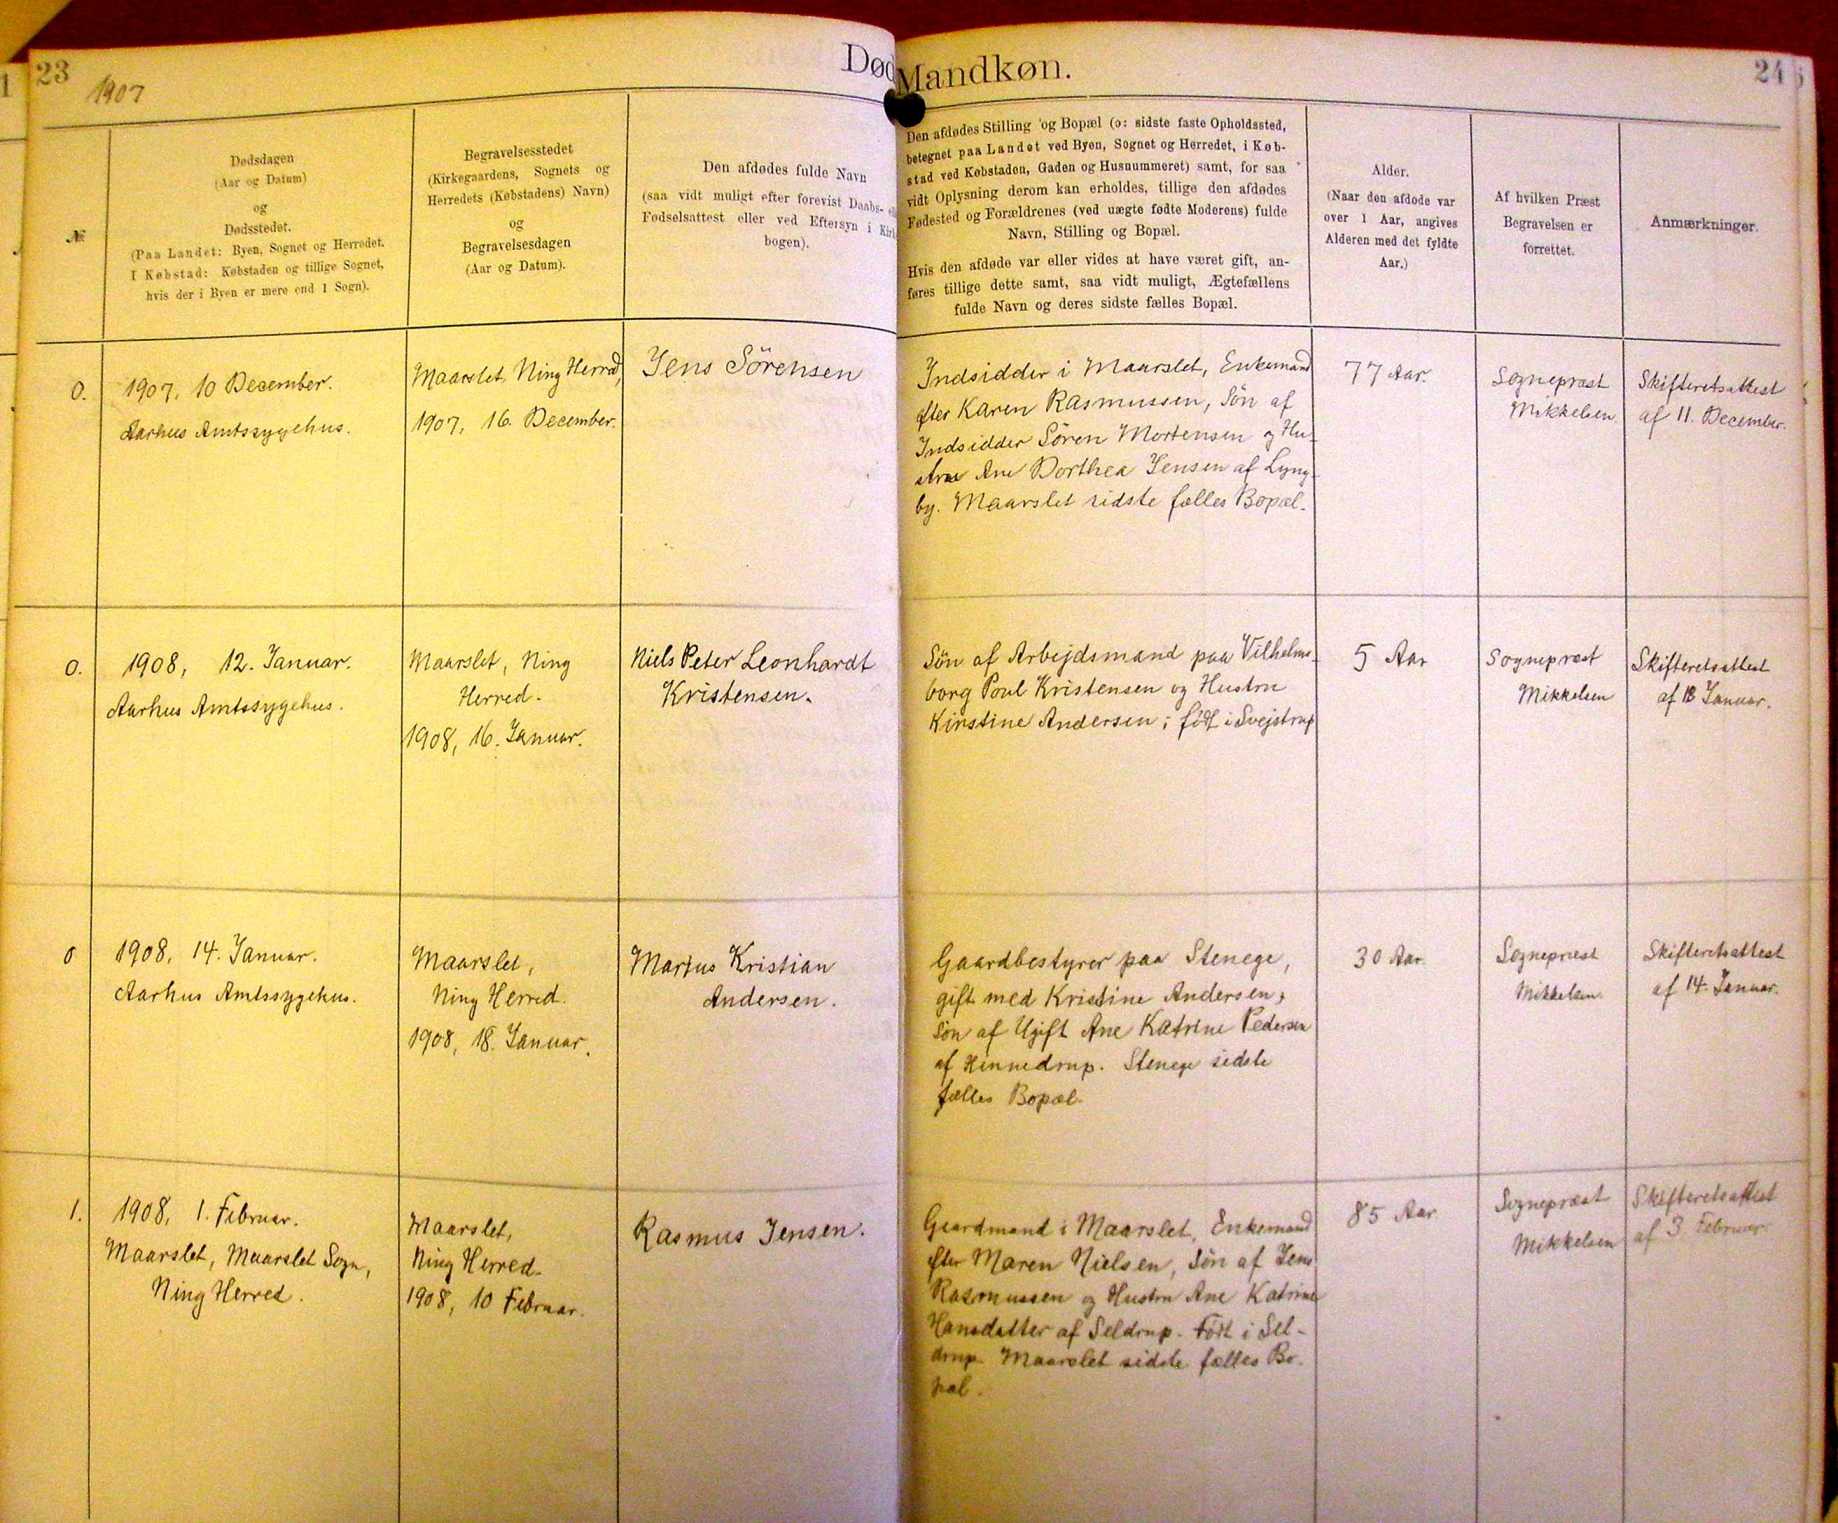 23
1907
Død
Mandkøn.
24
№
Dødsdagen
(Aar og Datum)
og
Dødsstedet.
(Paa Landet: Byen, Sognet og Herredet.
I Købstad: Købstaden og tillige Sognet,
hvis der i Byen er mere end 1 Sogn).
Begravelsesstedet
(Kirkegaardens, Sognets og
Herredets (Købstadens) Navn)
og
Begravelsesdagen
(Aar og Datum).
Den afdødes fulde Navn
(saa vidt muligt efter forevist Daabs-
Fødselsattest eller ved Eftersyn i Kirke
bogen).
Den afdødes Stilling og Bopæl (ɔ: sidste faste Opholdssted,
betegnet paa Landet ved Byen, Sognet og Herredet, i Køb-
stad ved Købstaden, Gaden og Husnummeret) samt, for saa
vidt Oplysning derom kan erholdes, tillige den afdødes
Fødested og Forældrenes (ved uægte fødte Moderens) fulde
Navn, Stilling og Bopæl.
Hvis den afdøde var eller vides at have været gift, an-
føres tillige dette samt, saa vidt muligt, Ægtefællens
fulde Navn og deres sidste fælles Bopæl.
Alder.
(Naar den afdøde var
over 1 Aar, angives
Alderen med det fyldte
Aar.)
Af hvilken Præst
Begravelsen er
forrettet.
Anmærkninger.
0.
1907, 10 December.
Aarhus Amtssygehus.
Maarslet, Ning Herred,
1907, 16. December.
Jens Sörensen
Indsidder i Maarslet, Enkemand
efter Karen Rasmussen, Søn af
Indsidder Sören Mortensen og Hu-
stru Ane Dorthea Jensen af Lyng-
by. Maarslet sidste fælles Bopæl.
77 Aar.
Sognepræst
Mikkelsen.
Skifteretsattest
af 11. December.
0.
1908, 12. Januar.
Aarhus Amtssygehus.
Maarslet, Ning
Herred.
1908, 16. Januar.
Niels Peter Leonhardt
Kristensen.
Søn af Arbejdsmand paa Vilhelms-
borg Poul Kristensen og Hustru
Kirstine Andersen; født i Svejstrup
5 Aar
Sognepræst
Mikkelsen
Skifteretsattest
af 13 Januar.
0
1908, 14. Januar.
Aarhus Amtssygehus.
Maarslet,
Ning Herred.
1908, 18. Januar.
Marius Kristian
Andersen.
Gaardbestyrer paa Stenege,
gift med Kristine Andersen,
Søn af Ugift Ane Katrine Pedersen
af Hinnedrup. Stenege sidste
fælles Bopæl.
30 Aar.
Sognepræst
Mikkelsen.
Skifteretsattest
af 14. Januar.
1.
1908, 1. Februar.
Maarslet, Maarslet Sogn,
Ning Herred.
Maarslet,
Ning Herred.
1908, 10 Februar.
Rasmus Jensen.
Gaardmand i Maarslet, Enkemand
efter Maren Nielsen, Søn af Jens
Rasmussen og Hustru Ane Katrine
Hansdatter af Seldrup. Født i Sel-
drup. Maarslet sidste fælles Bo-
pæl.
85 Aar.
Sognepræst
Mikkelsen
Skifteretsattest
af 3. Februar.